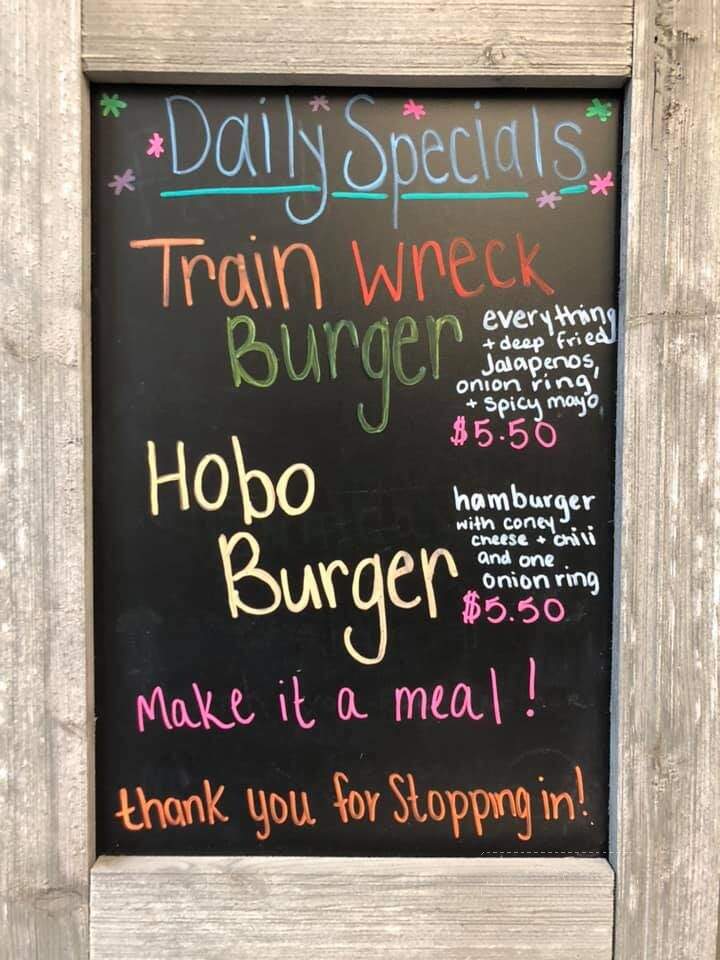 Daily Specials
Train Wreck
Burger
everything
+ deep fried
Jalapenos,
onion ring,
+ Spicy mayo
$5.50
Hobo
Burger
hamburger
with coney
cheese + chili
and one
onion ring
$5.50
Make it a meal!
thank you for Stopping in!